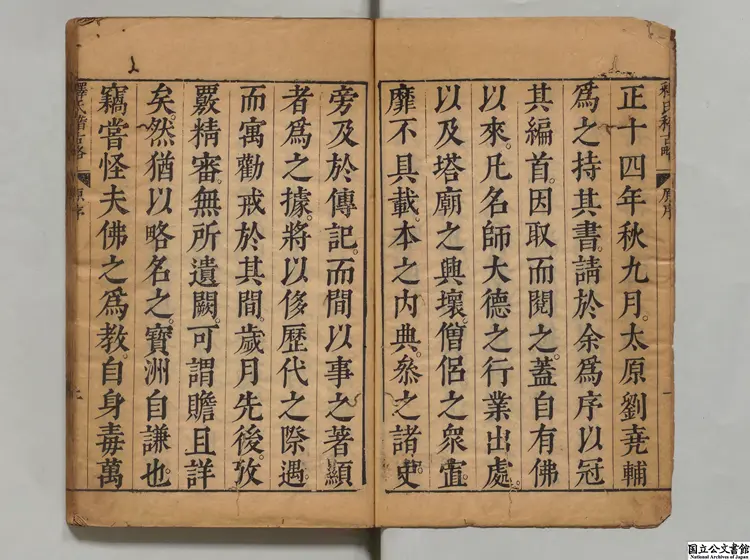 釋氏稽古略
原序
正十四年秋九月。太原劉堯輔
為之持其書。請於余為序以冠
其編首。因取而閱之。蓋自有佛
以來。凡名師大德之行業出處。
以及塔廟之興壞。僧侶之衆寡。
靡不具載。本之內典。叅之諸史。
旁及於傳記。而間以事之著顯
者為之據。將以侈歷代之際遇。
而寓勸戒於其間。歲月先後。攷
覈精審。無所遺闕。可謂贍且詳
矣。然猶以略名之。寶洲自謙也。
竊嘗怪夫佛之為教。自身毒萬
釋氏稽古略
原序
国立公文書館
National Archives of Japan